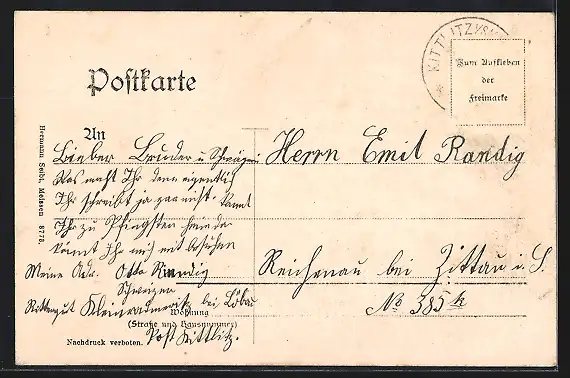 KITTLITZ
Postkarte
Zum Aufkleben
der
Freimarke
An
Hermann Seibt, Meissen 8778.
Lieber Bruder u Schwägerin
Was macht Ihr denn eigentlich
Ihr schreibt ja gar nicht. Kannt
Ihr zu Pfingsten
könnt Ihr mich mit besuchen
Meine Adr. Otto Randig
Schweizer
Rittergut Kleinradmeritz bei Löbau
Post Kittlitz.
Herrn Emil Randig
Reichenau bei Zittau i. S.
No 385 h
Wohnung
(Straße und Hausnummer)
Nachdruck verboten.